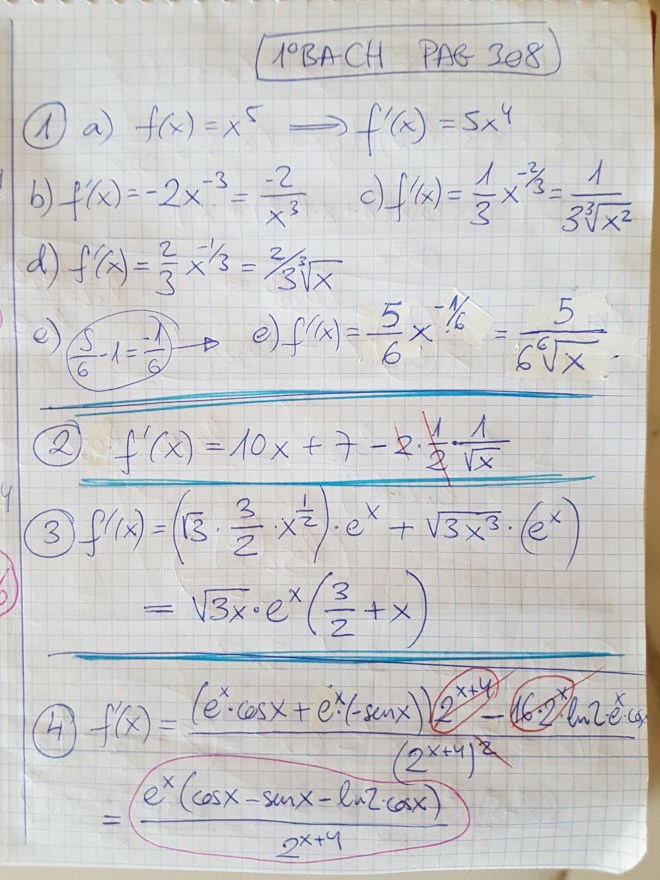 1º BACH PAG 308
① a) f(x) = x⁵ ⟹ f'(x) = 5x⁴
b) f'(x) = -2x⁻³ = -2/x³ c) f'(x) = 1/3 x^(-2/3) = 1/(3∛(x²))
d) f'(x) = 2/3 x^(-1/3) = 2/3∛x
e) 5/6 - 1 = -1/6 → e) f'(x) = 5/6 x^(-1/6) = 5/(6 ⁶√x)
② f'(x) = 10x + 7 - 2·1/2·1/√x
③ f'(x) = (√3 · 3/2 · x^(1/2)) · eˣ + √(3x³) · (eˣ)
= √(3x) · eˣ (3/2 + x)
④ f'(x) = ((eˣ·cosx + eˣ·(-senx)) 2^(x+4) - 16·2ˣ·ln2·eˣ·cos)/(2^(x+4))²
= eˣ(cosx - senx - ln2·cosx)/2^(x+4)